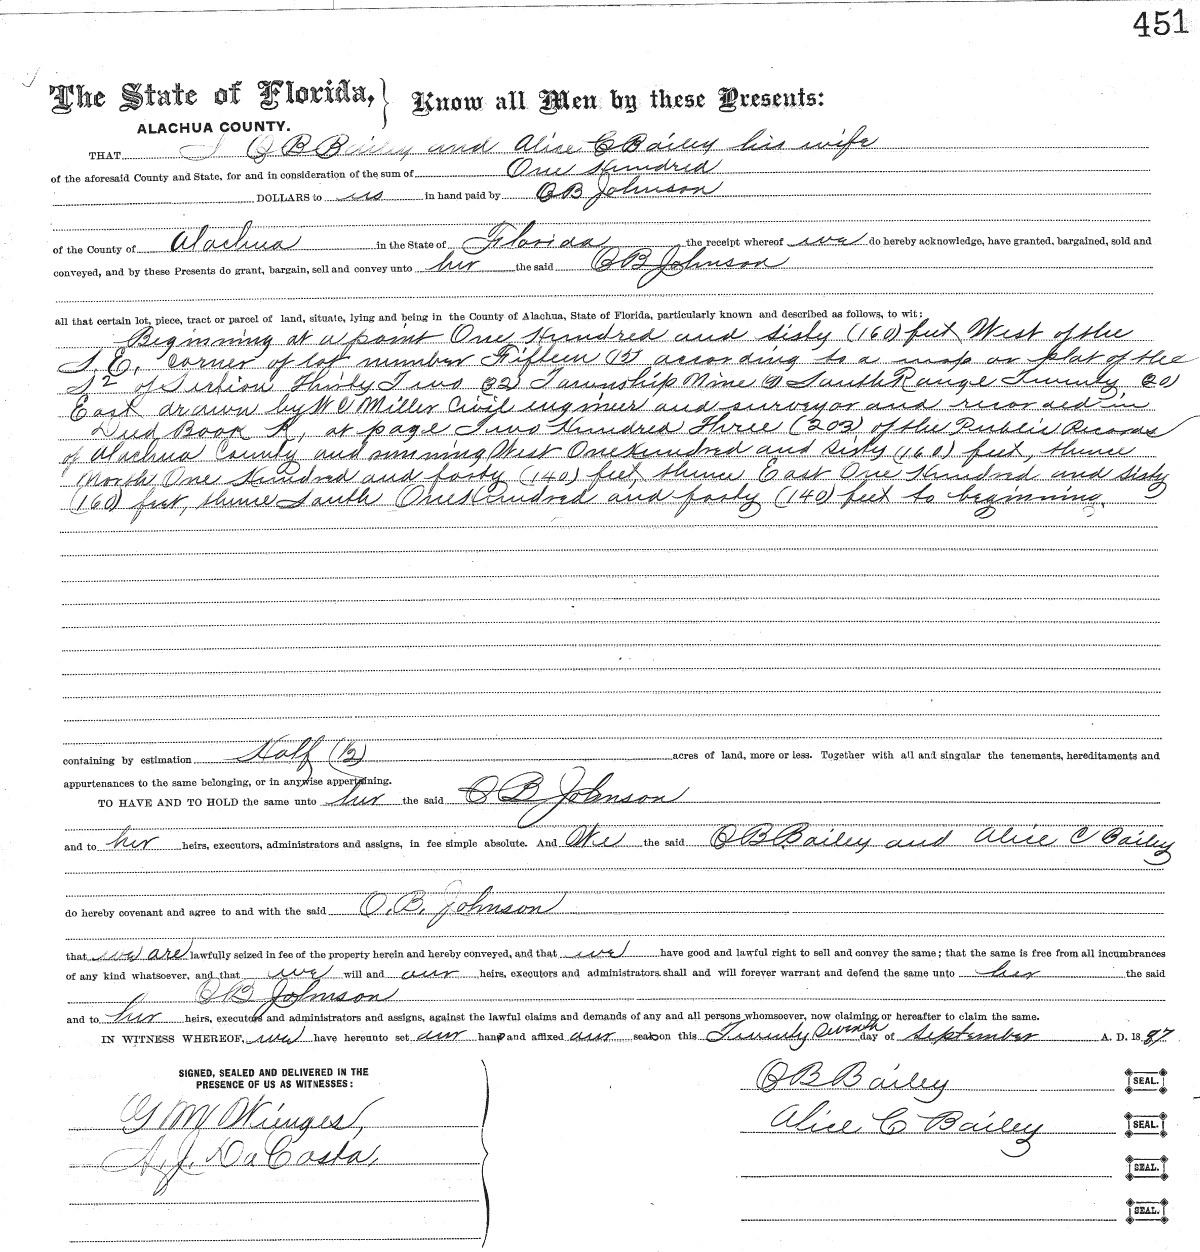 451
The State of Florida, } Know all Men by these Presents:
ALACHUA COUNTY.
THAT I O B Bailey and Alice C Bailey his wife
of the aforesaid County and State, for and in consideration of the sum of One Hundred
DOLLARS to us in hand paid by O B Johnson
of the County of Alachua in the State of Florida the receipt whereof we do hereby acknowledge, have granted, bargained, sold and
conveyed, and by these Presents do grant, bargain, sell and convey unto her the said O B Johnson
all that certain lot, piece, tract or parcel of land, situate, lying and being in the County of Alachua, State of Florida, particularly known and described as follows, to wit:
Beginning at a point One Hundred and sixty (160) feet West of the
S. E. corner of lot number Fifteen 15 according to a map or plat of the
of Section Thirty Two 32) Township Nine 9) South Range Twenty 20)
East drawn by W C Miller Civil engineer and surveyor and recorded in
Deed Book R, at page Two Hundred Three (203) of the Public Records
of Alachua County and running West One Hundred and sixty (160) feet, thence
North One Hundred and forty (140) feet, thence East One Hundred and sixty
(160) feet, thence South One Hundred and forty (140) feet to beginning.
containing by estimation Half (1/2) acres of land, more or less. Together with all and singular the tenements, hereditaments and
appurtenances to the same belonging, or in anywise appertaining.
TO HAVE AND TO HOLD the same unto her the said O B Johnson
and to her heirs, executors, administrators and assigns, in fee simple absolute. And We the said O B Bailey and Alice C Bailey
do hereby covenant and agree to and with the said O. B. Johnson
that we are lawfully seized in fee of the property herein and hereby conveyed, and that we have good and lawful right to sell and convey the same; that the same is free from all incumbrances
of any kind whatsoever, and that we will and our heirs, executors and administrators shall and will forever warrant and defend the same unto her the said
O B Johnson
and to her heirs, executors and administrators and assigns, against the lawful claims and demands of any and all persons whomsoever, now claiming or hereafter to claim the same.
IN WITNESS WHEREOF, we have hereunto set our hand and affixed our seal on this Twenty Seventh day of September A. D. 18 87
SIGNED, SEALED AND DELIVERED IN THE
PRESENCE OF US AS WITNESSES:
O B Bailey SEAL.
G M Wienges, Alice C Bailey SEAL.
A. J. DaCosta, SEAL.
SEAL.